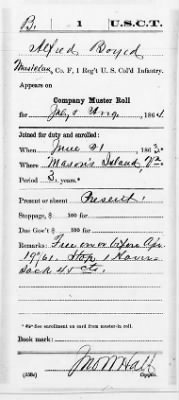 B. 1 U.S.C.T.
Alfred Boyed
Musician, Co. F, 1 Reg't U. S. Col'd Infantry.
Appears on
Company Muster Roll
for July & Aug, 1864
Joined for duty and enrolled:
When June 21, 1863.
Where Mason's Island, Va.
Period 3 years.*
Present or absent Present.
Stoppage, $ 100 for
Due Gov't $ 100 for
Remarks: Free on or before Apr.
19th/61. Stop 1 Haver-
sack 48 cts.
*See enrollment on card from muster-in roll.
Book mark:
Jno W Hall
Copyist.